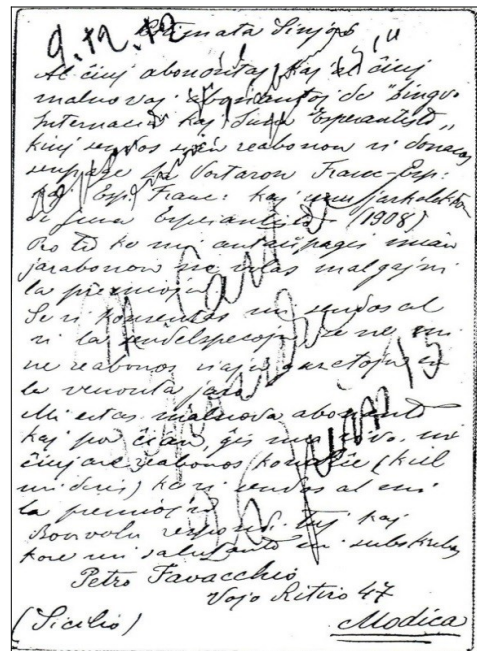 9.12.12
Estimata Sinjoro
Al ĉiuj abonontaj kaj al ĉiuj
malnovaj abonantoj de "Lingvo
Internacia kaj Juna Esperantisto"
kiuj sendos sian reabonon vi donacos
senpage la Vortaron Franc-Esp:
kaj Esp. Franc: kaj unu jarkolekton
de Juna Esperantisto (1908)
Pro tio ke mi antaŭpagis mian
jarabonon ne volas malgajni
la premiojn
Se vi konsentas mi sendos al
vi la se ne mi
ne reabonos viajn gazetojn en
la venonta jaro
Mi estas malnova abonanto
kaj por ĉiam, ĝis mia vivo, mi
ĉiujare reabonos kondiĉe (kiel
mi diris) ke vi sendos al mi
la premiojn
Bonvolu respondi tuj kaj
kore mi salutante mi subskribas
Petro Favacchio
Vojo Ritiro 47
(Sicilio) Modica